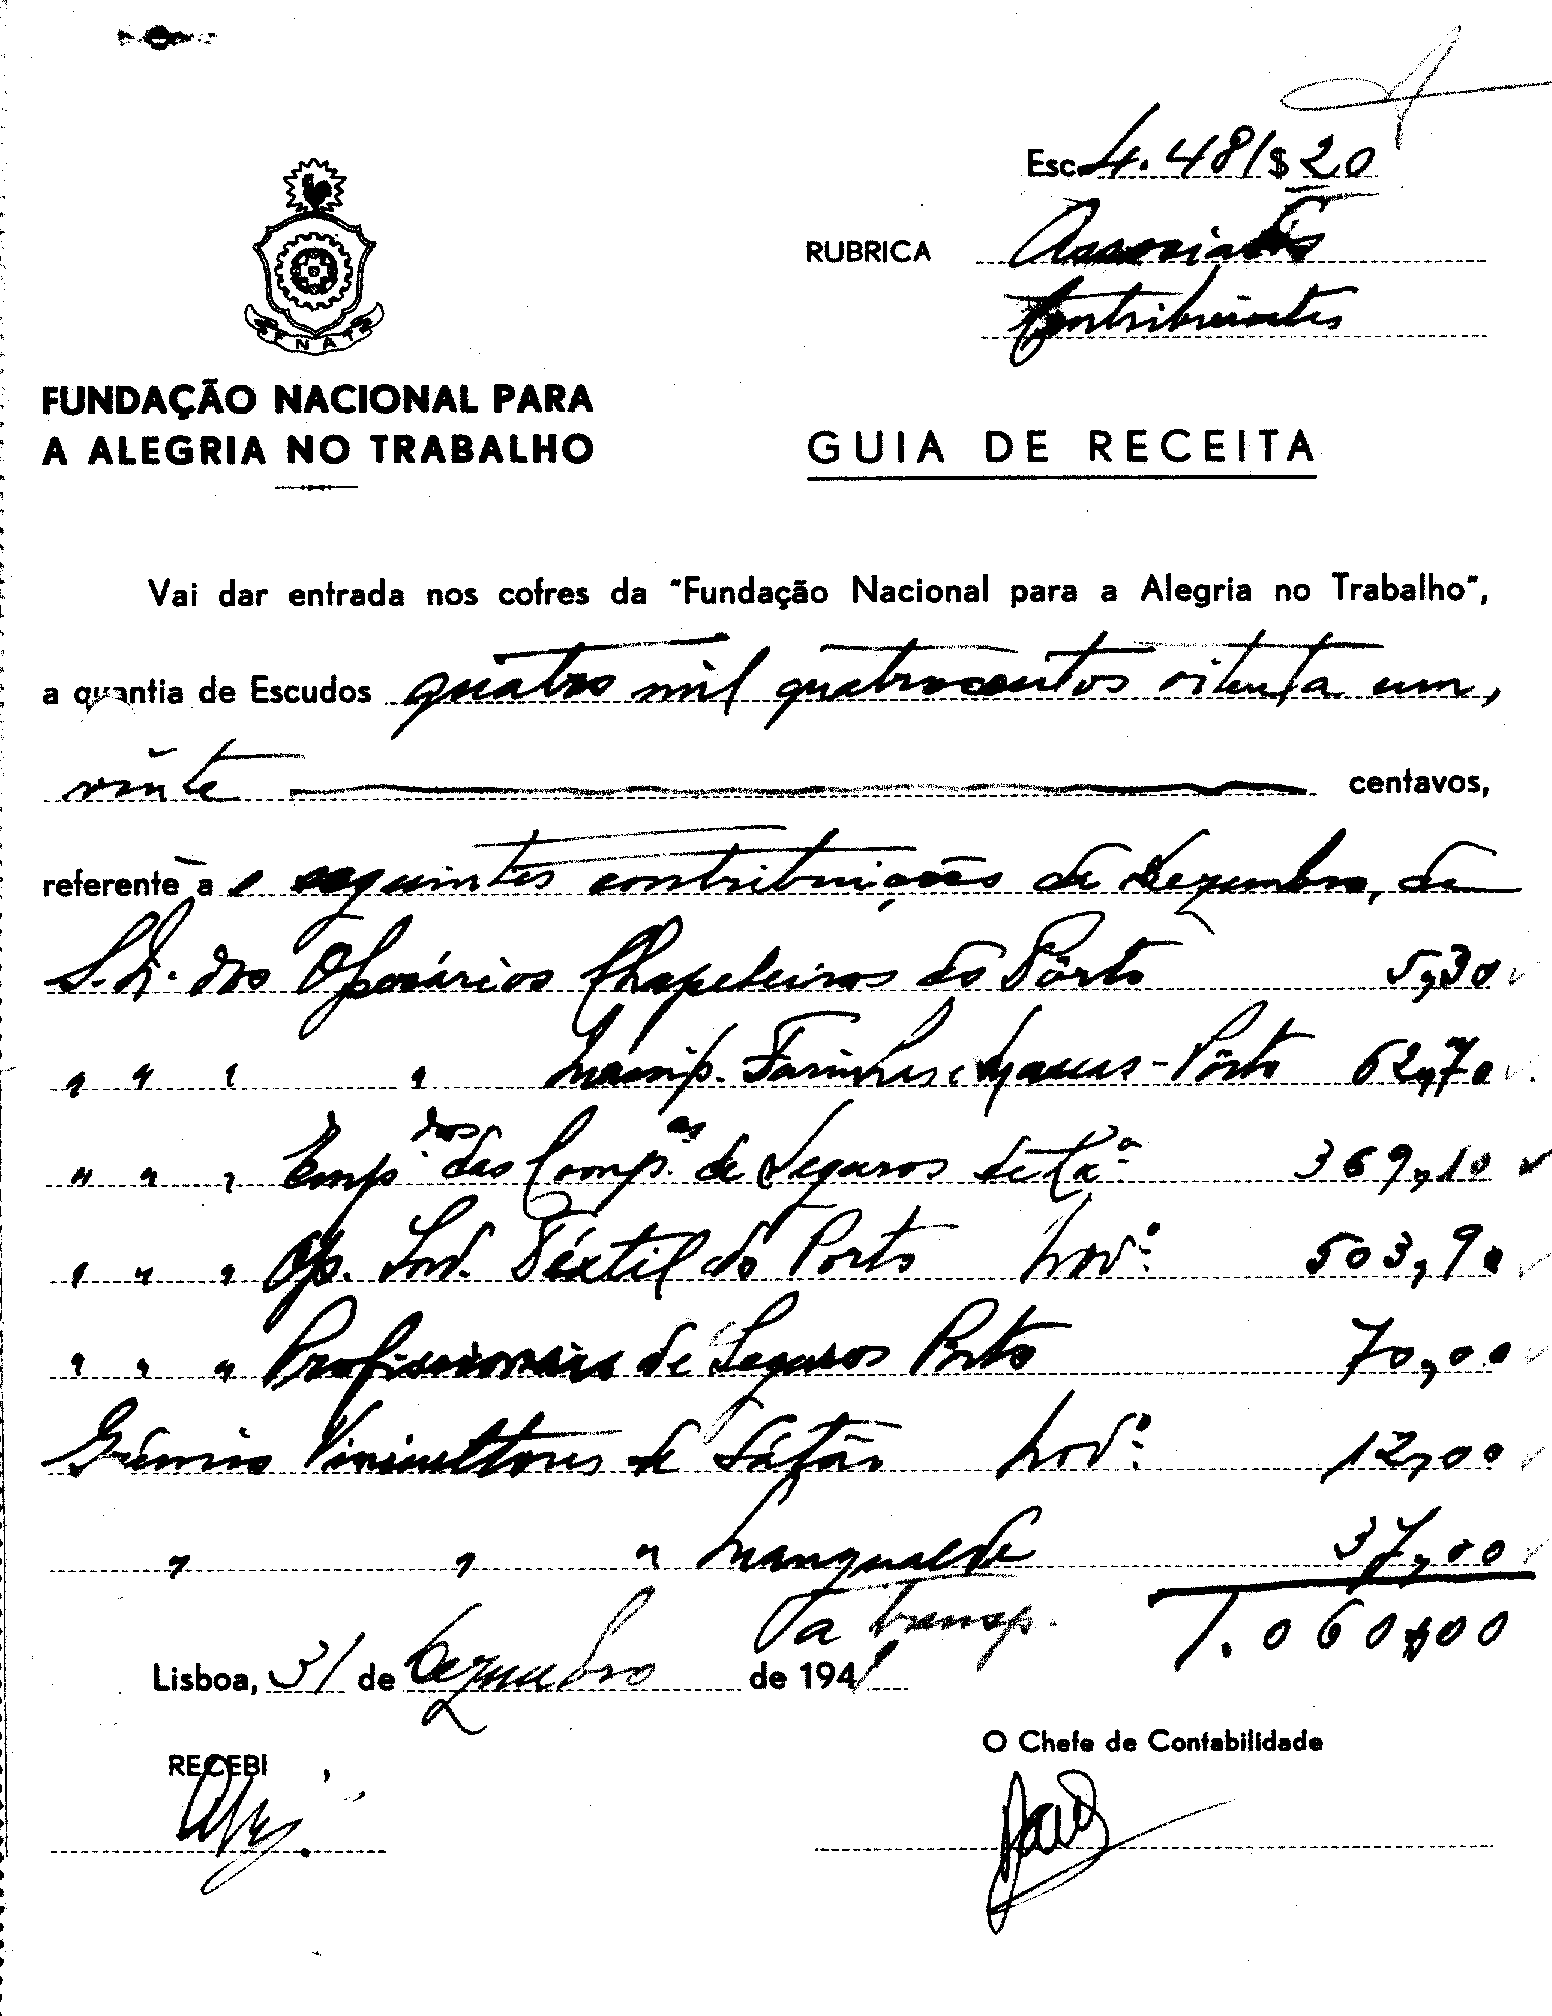 Esc. 4.481$20
RUBRICA Associados
Contribuintes
F N A T
FUNDAÇÃO NACIONAL PARA
A ALEGRIA NO TRABALHO
GUIA DE RECEITA
Vai dar entrada nos cofres da "Fundação Nacional para a Alegria no Trabalho",
a quantia de Escudos quatro mil quatrocentos oitenta um,
vinte centavos,
referente a seguintes contribuições de Dezembro, de
S.N. dos Operários Chapeleiros do Pôrto 5,30
" " " " Manip. Farinhas, Massas - Pôrto 62,70
" " " Emp.dos das Comp.as de Seguros de Ca.º 369,10
" " " Op. Ind. Têxtil do Porto Nov.º 503,90
" " " Profissionais de Seguros Porto 70,00
Grémio Vinicultores de Sátão Nov.º 12,00
" " " Mangualde 37,00
a transp. 1.060$00
Lisboa, 31 de Dezembro de 1941
O Chefe de Contabilidade
RECEBI